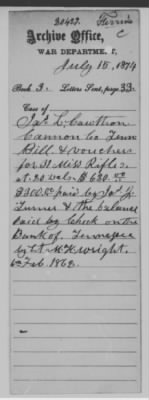 30427.
C
Archive Office,
WAR DEPARTMENT,
July 15, 1874
Book 3. Letters Sent, page 33.
Case of
Jas. L. Cawthon
Cannon Co. Tenn
Bill & vouchers
for 31 Miss. Rifles.
at 20 dols. $620.00
$300.00 paid by Jas. J.
Turner & the balance
paid by Check on the
Bank of Tennessee
by Lt. McKwright.
Feb. 1862.